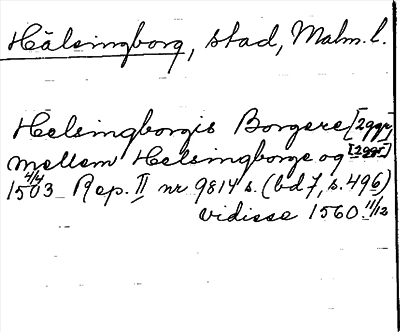 Hälsingborg, stad, Malm. l.
Helsingborgis Borgere [2ggr]
mellem Helsingborge og [2ggr]
1503 4/4 Rep. II nr 9814 s. (bd 7, s. 496)
vidisse 1560 11/12